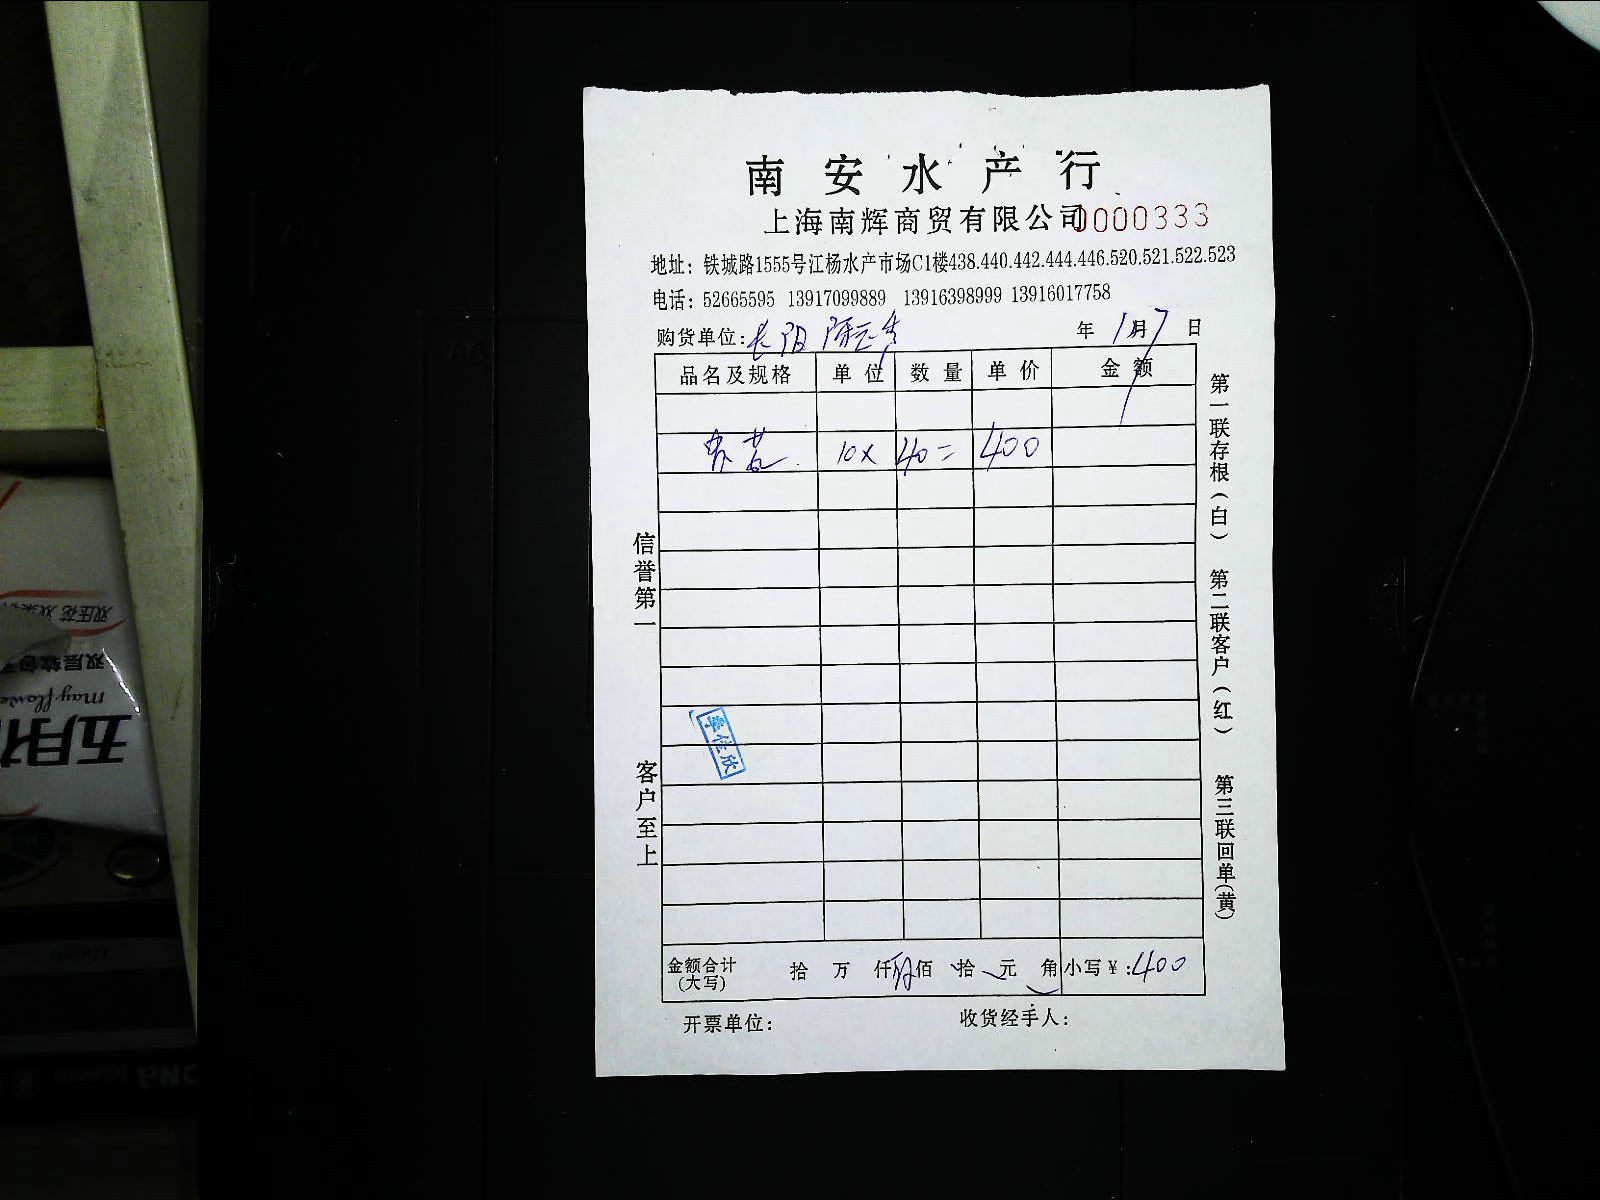 南安水产行
上海南辉商贸有限公司 0000333
地址：铁城路1555号江杨水产市场C1楼438.440.442.444.446.520.521.522.523
电话：52665595 13917099889 13916398999 13916017758
购货单位：长阳 年 1月7日
品名及规格 单位 数量 单价 金额
10× 40= 400
金额合计(大写) 拾 万 仟 佰 拾 元 角 小写￥：400
开票单位： 收货经手人：
信誉第一
客户至上
第一联存根（白） 第二联客户（红） 第三联回单(黄)
双压花
may flow
五月花